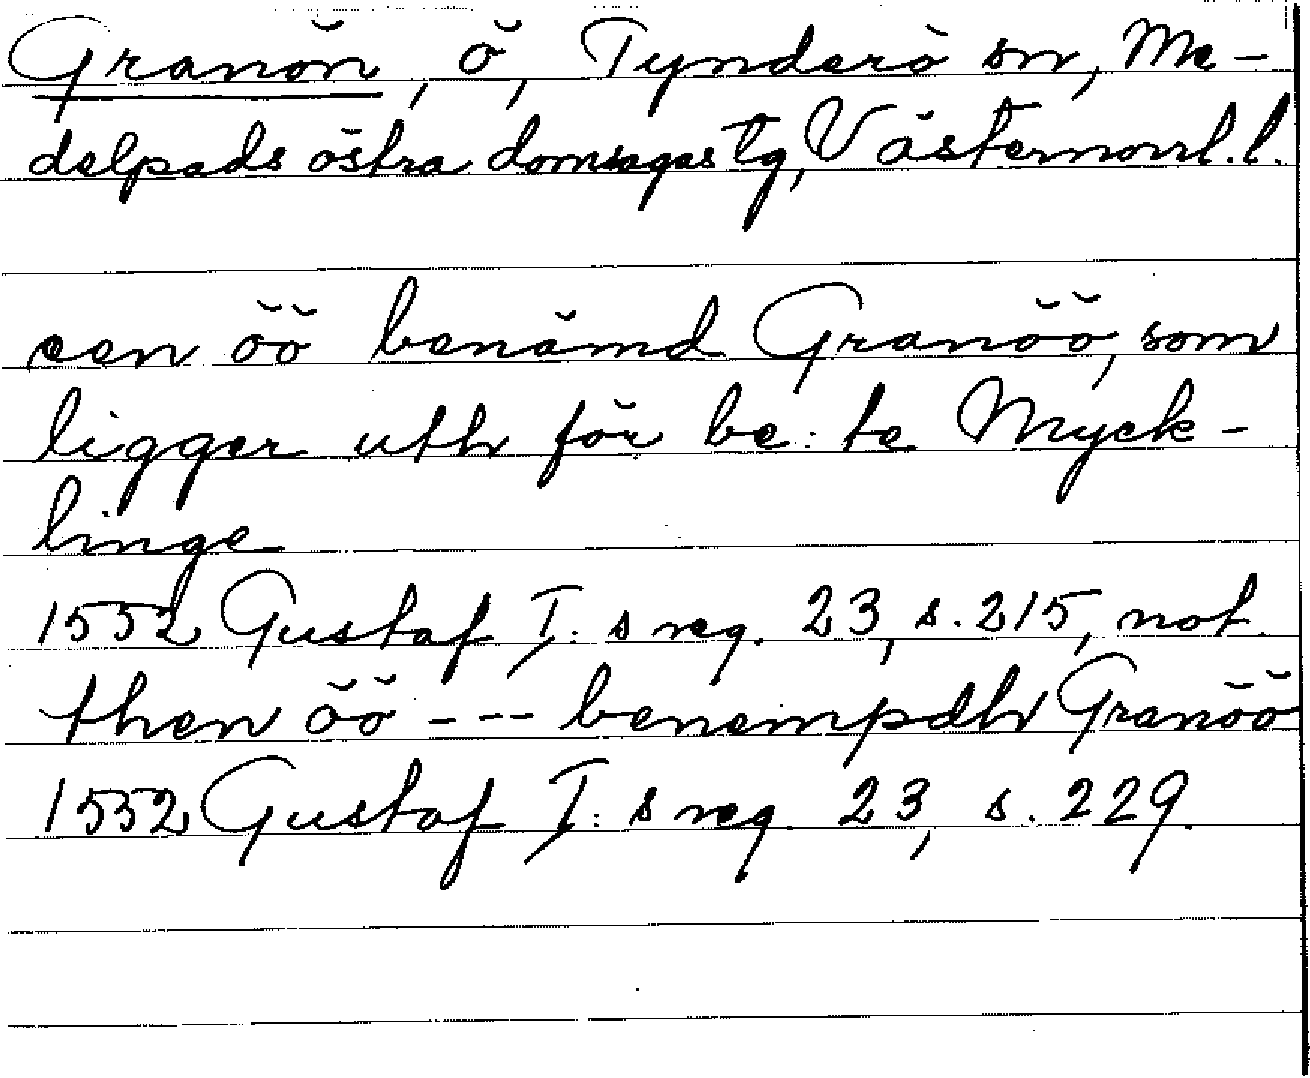 Granön, ö, Tynderö sn, Me-
delpads östra domsagas tg, Västernorrl. l.
een öö benämd Granöö, som
ligger uth för be: te Myck-
linge
1552 Gustaf I: s reg. 23, s. 215, not.
then öö --- benempdh Granöö
1552 Gustaf I: s reg. 23, s. 229.